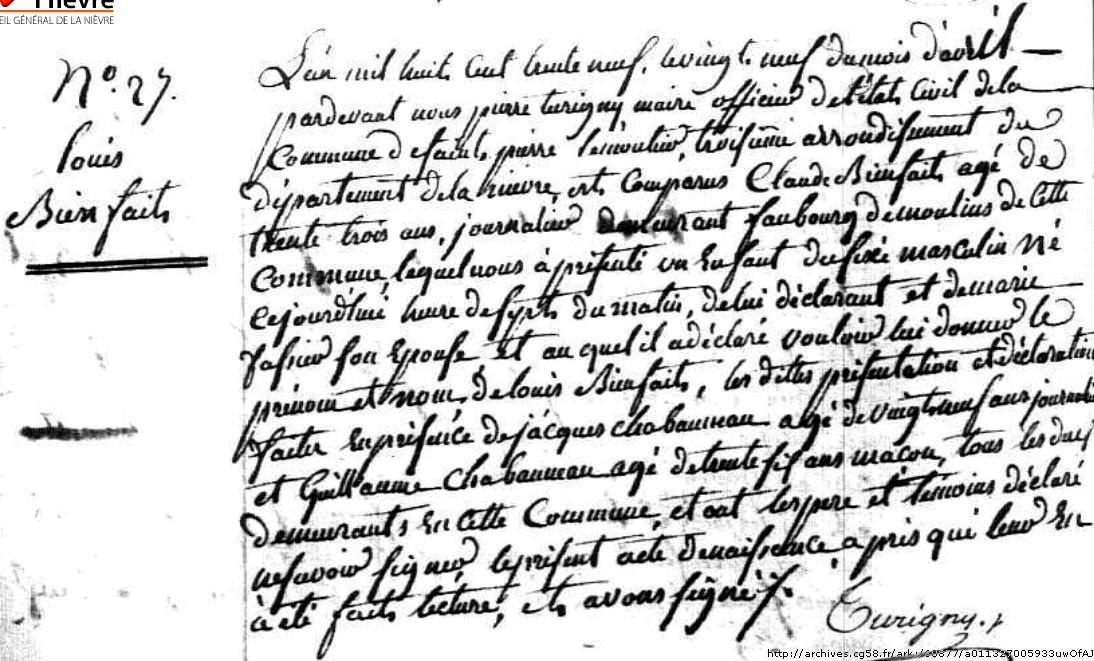 Nièvre
EIL GÉNÉRAL DE LA NIÈVRE
N° 27.
louis
Bienfaits
L'an mil huit cent trente neuf, le vingt neuf du mois d'avril
pardevant nous pierre turigny maire officier de l'état Civil de la
Commune de saint pierre lemoutier, troisième arrondissement du
département de la nievre, est Comparus Claude Bienfaits agé de
trente trois ans, journalier demeurant faubourg de moulins de Cette
Commune, lequel nous à présenté un Enfant du sexe masculin né
Cejourd'hui heure de sept du matin, de lui déclarant et de marie
son Epouse et au quel il a déclaré vouloir lui donner le
prénom et nom de louis Bienfaits, les dittes présentation et déclaration
faites En présence de jacques chabanneau agé de vingt neuf ans journalier
et Guillaume Chabanneau agé de trente six ans maçon, tous les deux
demeurants En Cette Commune, et ont les pere et témoins déclaré
ne savoir signer, le présent acte de naissance, a pris qu'il leur En
à été faits lecture, et avons signé
Turigny
http://archives.cg58.fr/ark:/